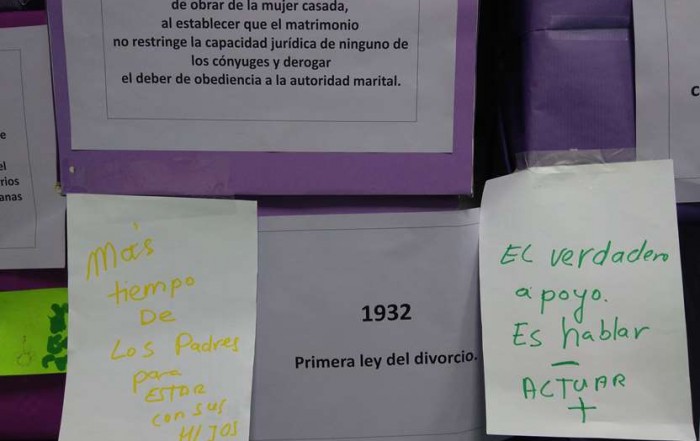 de obrar de la mujer casada,
al establecer que el matrimonio
no restringe la capacidad jurídica de ninguno de
los cónyuges y derogar
el deber de obediencia a la autoridad marital.
e
el
rios
anas
c
Más
tiempo
De
Los Padres
para
ESTAR
con sus
HIJOS
1932
Primera ley del divorcio.
EL verdadero
apoyo.
Es hablar
–
ACTUAR
+